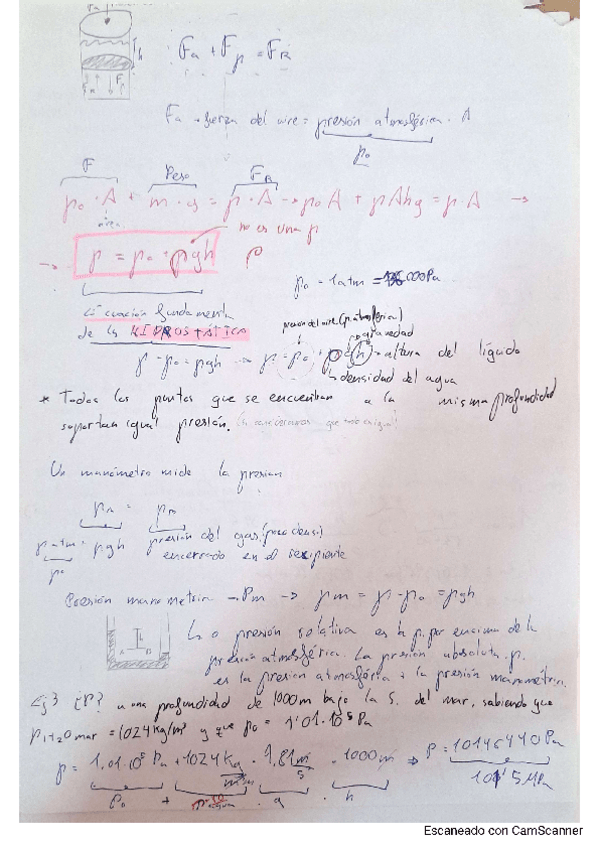 Fa + Fp = FR
Fa → fuerza del aire = presión atmosférica · A
p₀
F Peso FR
p₀ · A + m · g = p · A → p₀ A + ρAhg = p · A →
área no es una p
→ p = p₀ + ρgh ρ
p₀ = 1atm = 000Pa
Ecuación fundamental
de la HIDROSTÁTICA presión del aire (p. atmosférica)
gravedad
p - p₀ = ρgh → p = p₀ + h → altura del líquido
↳ densidad del agua
* Todos los puntos que se encuentran a la misma profundidad
soportan igual presión.
Un manómetro mide la presión
pA = pB
patm + ρgh presión del gas
p₀ encerrado en el recipiente
Presión manometria → Pm → pm = p - p₀ = ρgh
↳ o presión relativa es la p. por encima de la
presión atmosférica. La presión absoluta, p,
es la presión atmosférica + la presión manométrica.
A B
Ej 3 ¿P? a una profundidad de 1000m bajo la S. del mar, sabiendo que
ρH2O mar = 1024 Kg/m³ y que p₀ = 1'01·10⁵ Pa
p = 1.01·10⁵ Pa + 1024 Kg/m³ · 9,81 m/s · 1000m ⇒ P = 10146440 Pa
P₀ + · g · h 10'15 MPa
Escaneado con CamScanner